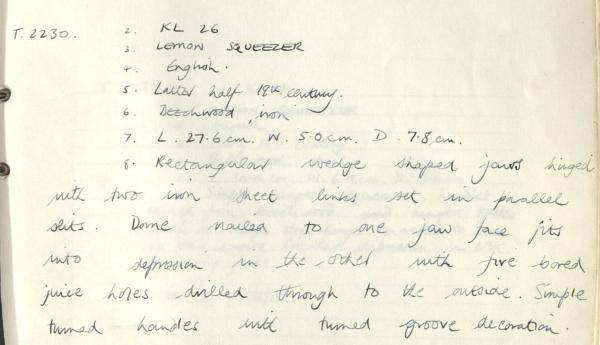 T.2230. 2. KL 26
3. LEMON SQUEEZER
4. English.
5. Latter half 19th century.
6. Beechwood, iron
7. L. 27.6.cm. W. 5.0.cm. D. 7.8.cm.
8. Rectangular wedge shaped jaws hinged
with two iron sheet links set in parallel
slits. Dome nailed to one jaw face fits
into depression in the other with five bored
juice holes drilled through to the outside. Simple
turned handles with turned groove decoration.